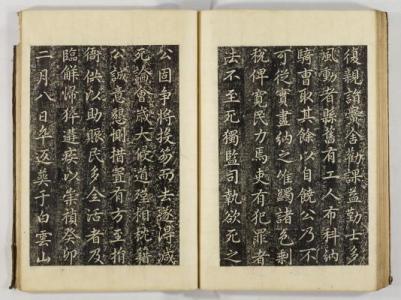 復親詣黌舍勸課益勤士多
風動者縣舊有工人布科納
騎曹取其餘以自饒公乃不
可從實盡納之惟蠲諸色剩
稅俾寛民力馬吏有犯罪者
法不至死獨監司執欲死之
公固爭將投劾而去遂得減
死論會歲大侵道殣相枕藉
公誠意懇惻措置有方至捐
衙供以助賑民多全活者及
臨解歸猝遘疾以崇禎癸卯
二月八日卒返葬于白雲山